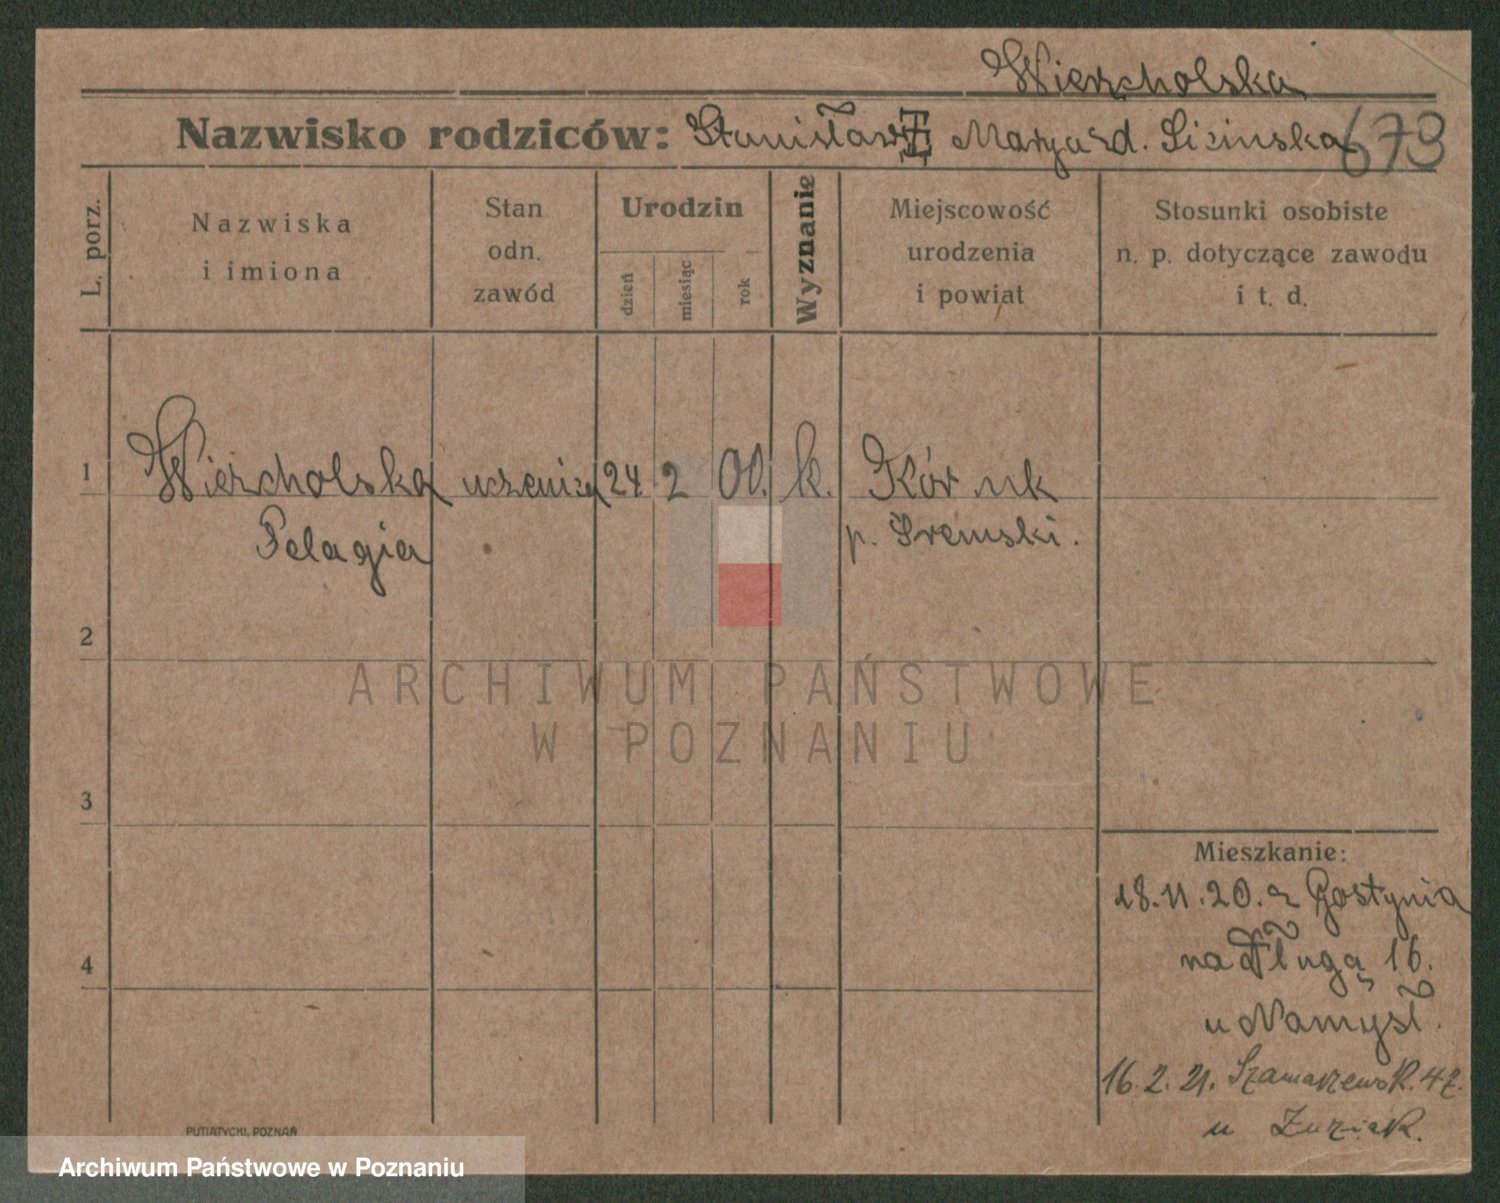 Wierzcholska
Nazwisko rodziców: Stanisław Marya zd. Sicinska 673
L. porz.
Nazwiska
i imiona
Stan
odn.
zawód
Urodzin
dzień
miesiąc
rok
Wyznanie
Miejscowość
urodzenia
i powiat
Stosunki osobiste
n. p. dotyczące zawodu
i t. d.
1 Wierzcholska uczenica 24 2 00. k. Kórnik
Pelagia p. Śremski.
2
ARCHIWUM PAŃSTWOWE
W POZNANIU
3
Mieszkanie:
18.11.20. z Gostynia
na Długą 16.
4
u Namysł.
16.2.21. Szamarzewsk. 47.
u
PUTIATYCKI, POZNAŃ
Archiwum Państwowe w Poznaniu